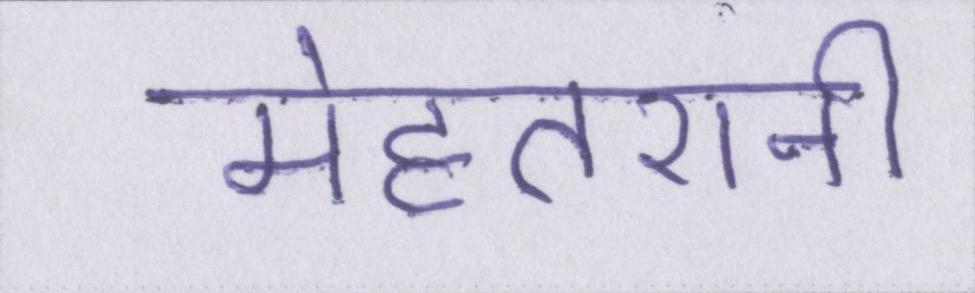 मेहतरानी